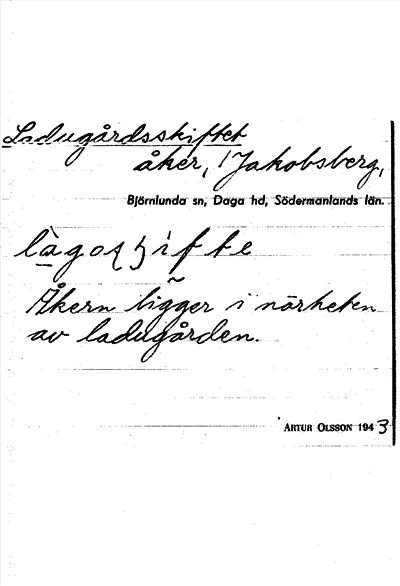 Ladugårdsskiftet
åker, Jakobsberg,
Björnlunda sn, Daga hd, Södermanlands län.
Åkern ligger i närheten
av ladugården.
ARTUR OLSSON 1943